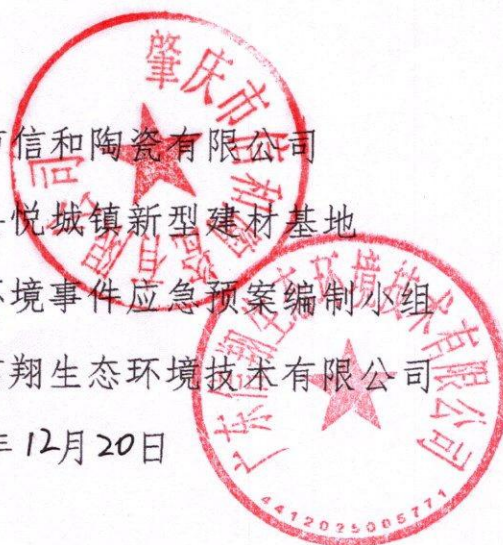 市信和陶瓷有限公司
县悦城镇新型建材基地
环境事件应急预案编制小组
翔生态环境技术有限公司
年12月20日
肇庆市信和陶瓷有限公司
广东信翔生态环境技术有限公司
4412025005771